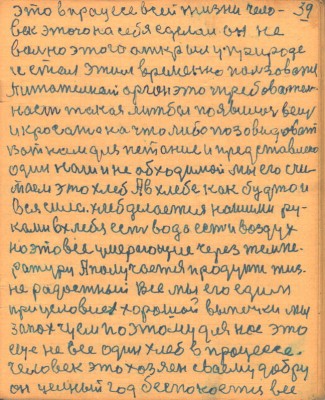 39
это в працесе всей жизни чело-
век этого на себя сделал он не
волно этого открыл у природе
и стал этим временно пользоватся
Питателний орган это требователь-
ность такая чтобы появилися вещ
и красата на что либо позавидоват
взят нам для петание и представлено
один нами и не обходимой мы его счи-
таем это хлеб А в хлебе как будто и
вся сила. хлеб делается нашими ру-
ками в хлебя есть вода есть и воздух
но это все умерающие через темпе-
ратуру А получается продукт жиз-
не радостный Все мы его едим
при условиех хорошой выпечки мы
запох чуем поэтому для нос это
еще не все один хлеб в процессе.
человек это хозяен своему добру
он целный год беспокоется все